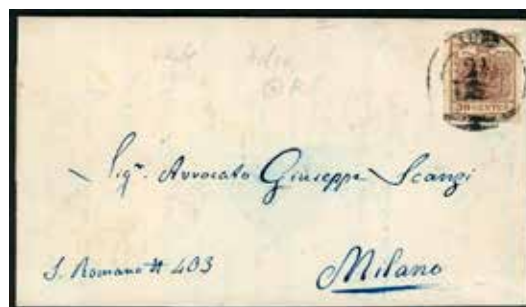 30 CENTES
Sigr. Avvocato Giuseppe Scanzi
S. Romano # 403
Milano